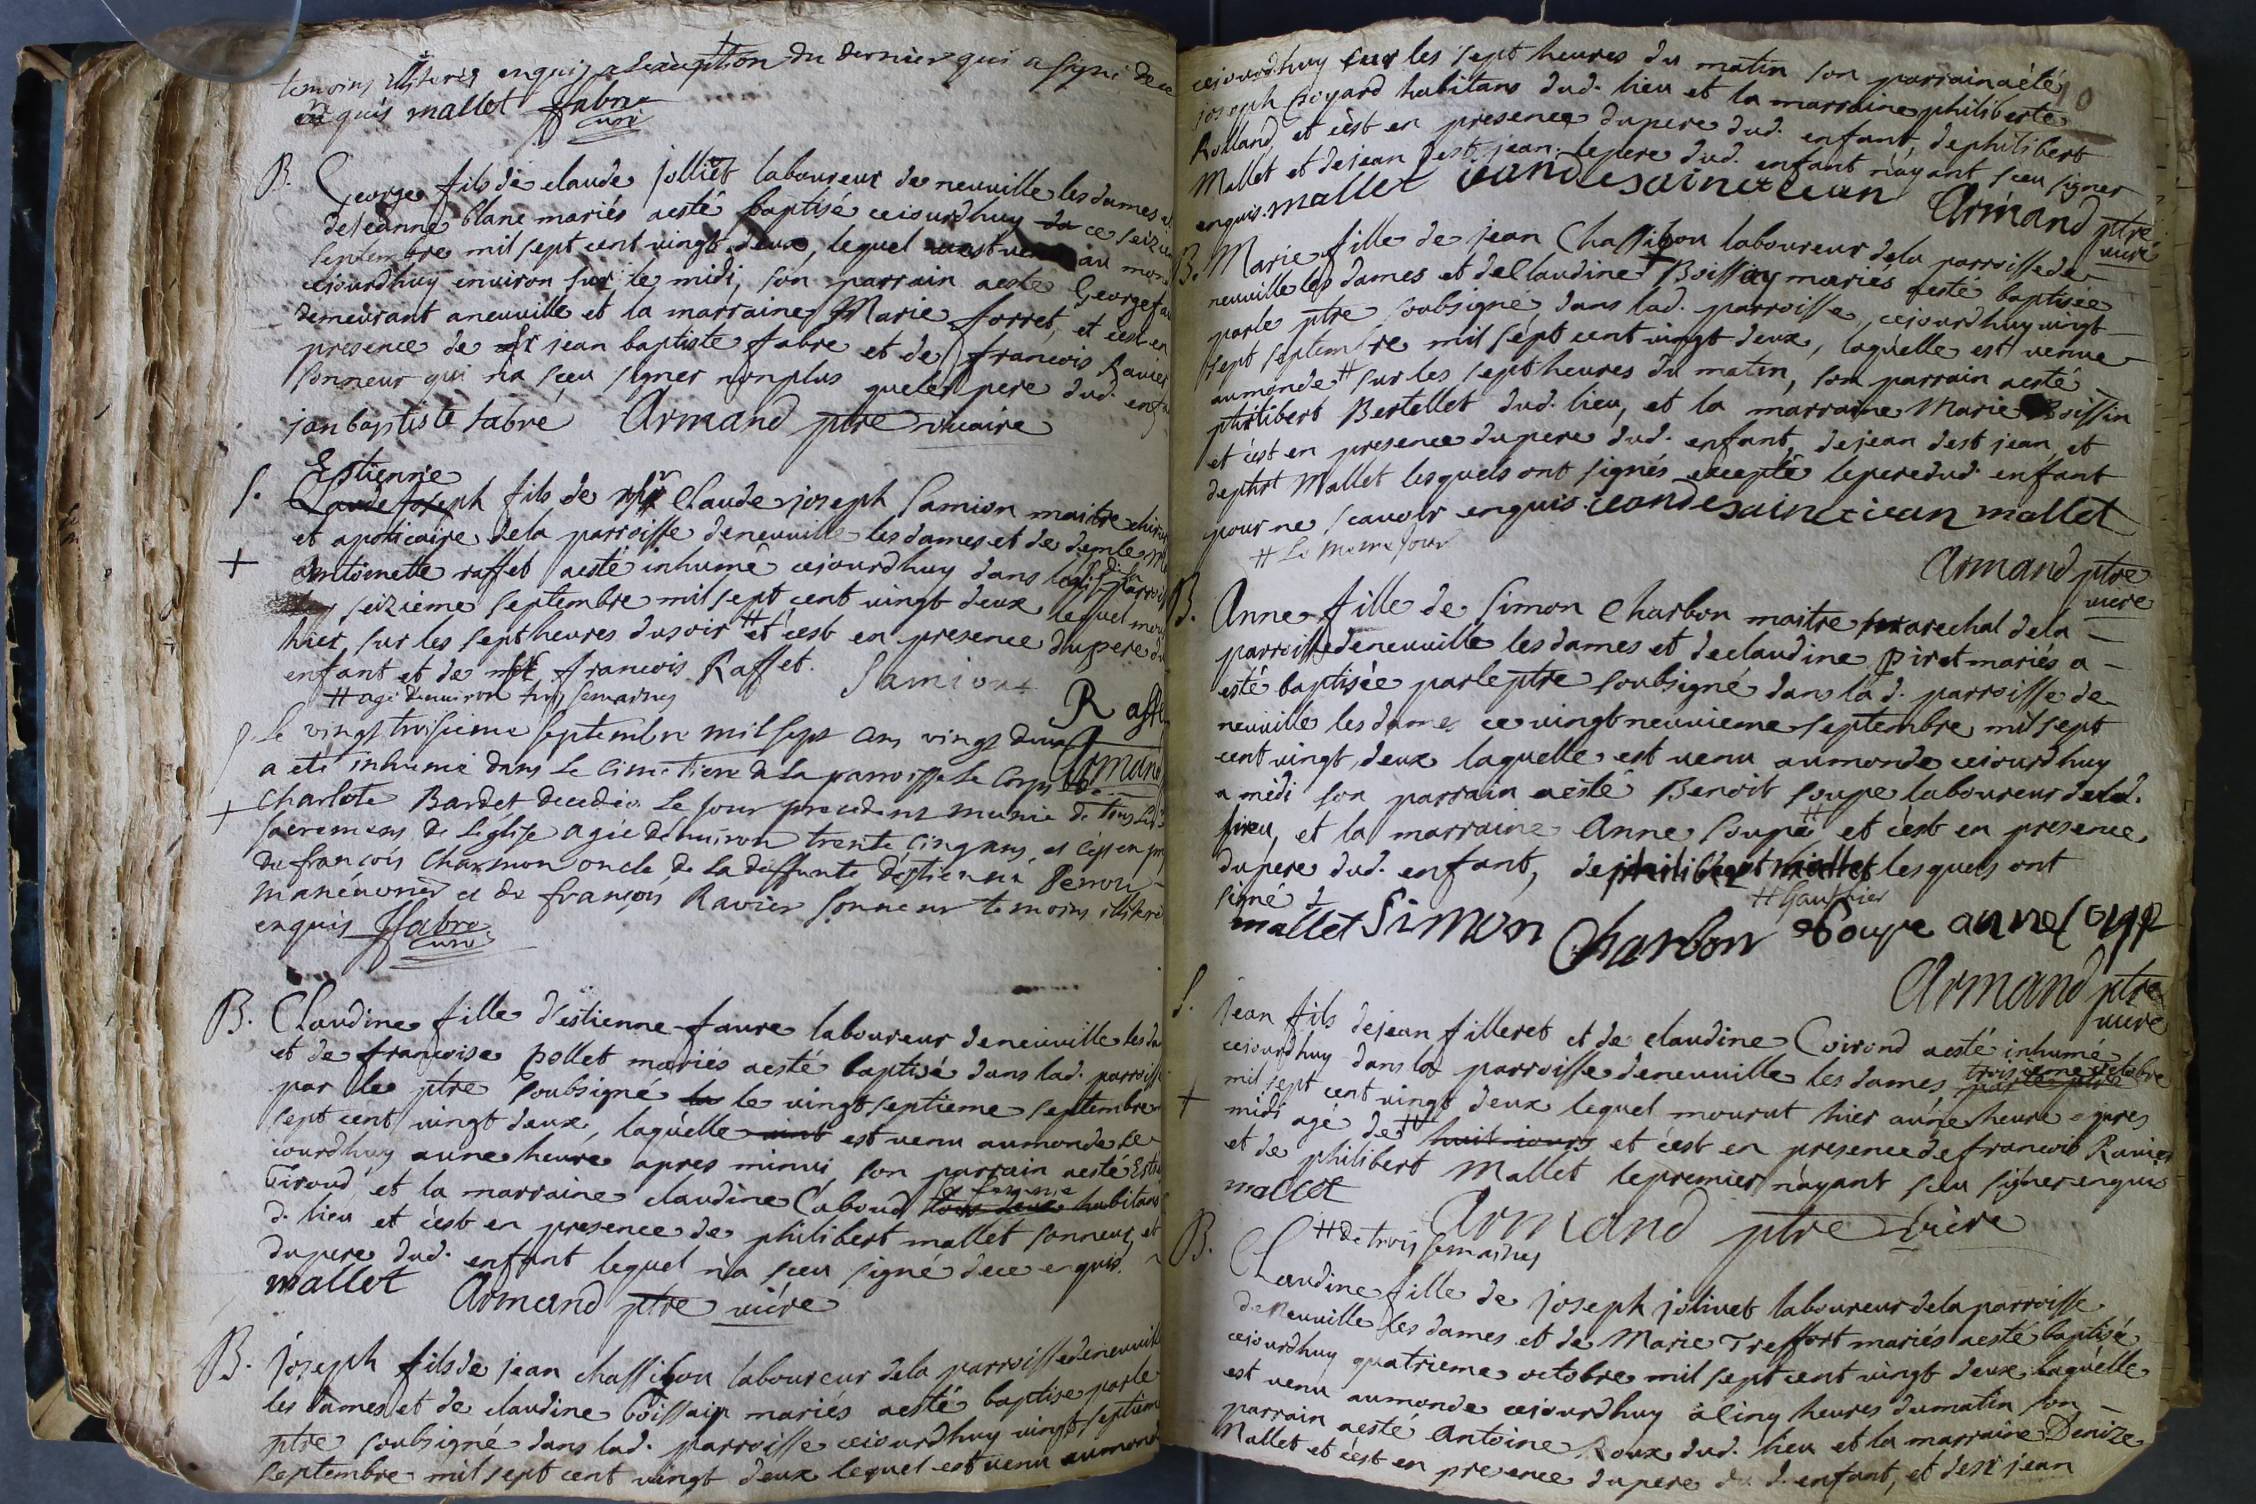 temoins illiterés enquis a lexception du dernier qui a signé de ce
enquis mallet ffabre
curé
B. George fils de claude jolliet laboureur de neuville les dames et
de jeanne blanc mariés aesté baptisé ceiourdhuy ce seizie
septembre mil sept cent vingt deux, lequel au mon
ceiourdhuy environ sur le midi, son parrain aesté George fa
demeurant a neuville et la marraine Marie forret, et c'est en
presence de sr jean baptiste fabre et de francois Ravier
sonneur qui n'a sceu signer non plus que le pere dud. enfa
jan baptiste fabre Armand ptre vicaire
Estienne
S. Claude Joseph fils de msr Claude joseph Samion maitre chirur
et apoticaire dela parroisse deneuville les dames et de demle
+ Antoinette raffet aesté inhumé ceiourdhuy dans parrois
seizieme septembre mil sept cent vingt deux lequel mou
hier sur les sept heures du soir # et c'est en presence dupere du
enfant et de msr francois Raffet. Samion
# agé denviron huit semaines
Raffe
S Le vingt troisieme septembre mil sept cens vingt deux
Armand
a eté inhumé dans le cimetiere de la parroisse le corps de
+ Charlote Bardet decedée le jour precedent munie de tous les
sacremens de l'église agée d'environ trente cinq ans, et c'est en pre
de françois Charmon oncle de la deffunte d'estienne Perrou
manéuvrier et de françois Ravier sonneur temoins illiteré
enquis ffabre
curé
B. Claudine fille d'estienne faure laboureur deneuville les da
et de françoise pollet mariés aesté baptisé dans lad. parroisse
par le ptre soubsigné le vingtseptieme septembre
sept cent vingt deux, laquelle est venu aumonde ce
iourdhuy aune heure apres minui, son parrain aesté Esti
Giroud et la marraine claudine Caboud sa femme tous deux habitans
d. lieu et c'est en presence de philibert mallet sonneur, et
dupere dud. enfant lequel n'a sceu signé dece enquis.
mallet Armand ptre vicre
B. joseph fils de jean chassibou laboureur dela parroisse deneuville
les dames et de claudine Boissain mariés aesté baptise parle
ptre soubsigné dans lad. parroisse ceiourdhuy vingt septiem
septembre mil sept cent vingt deux lequel est venu aumond
10
ceiourdhuy sur les sept heures du matin son parrain aété
joseph Goyard habitans dud. lieu et la marraine philiberte
Rolland, et c'est en presence dupere dud. enfant, de philibert
Mallet et de jean dest jean. lepere dud. enfant n'ayant sceu signer
enquis. mallet jean desainct jean Armand ptre
vicre
B. Marie fille de jean Chassibou laboureur dela parroisse de
neuville les dames et de Claudine Boissay mariés aesté baptisée
parle ptre soubsigné, dans lad. parroisse, ceiourdhuy vingt
sept septembre mil sept cent vingt deux, laquelle est venue
aumonde # sur les sept heures du matin, son parrain aesté
philibert Bertellet dud. lieu, et la marraine Marie Boissin
et c'est en presence dupere dud. enfant, dejean dest jean, et
dephbt Mallet lesquels ont signés excepté lepere dud. enfant
pour ne scavoir enquis. jean desainct jean mallet
# Le meme jour
Armand ptre
vicre
B. Anne fille de Simon Charbon maitre marechal dela
parroisse deneuville les dames et de claudine Piret mariés a
esté baptisée parleptre soubsigné dans lad. parroisse de
neuville les dames ce vingt neuvieme septembre mil sept
cent vingt deux laquelle est venu aumonde ceiourdhuy
a midi son parrain aesté Benoit soupe laboureur dud.
lieu, et la marraine Anne soupe # et c'est en presence
dupere dud. enfant, de philibert mallet lesquels ont
signé # Gauthier
mallet Simon Charbon B soupe anne soupe
Armand ptre
vicre
S. jean fils dejean filleret et de claudine Coirond aesté inhumé
ceiourdhuy dans la parroisse deneuville les dames troisieme octobre
+ mil sept cent vingt deux lequel mourut hier aune heure apres
midi agé de # huit iours et c'est en presence de francois Ravier
et de philibert Mallet lepremier n'ayant sceu signer enquis
mallet Armand ptre vicre
# de trois semaines
B. Claudine fille de joseph jolivet laboureur dela parroisse
de Neuville les dames et de Marie Treffort mariés aesté baptisée
ceiourdhuy quatrieme octobre mil sept cent vingt deux laquelle
est venu aumonde ceiourdhuy a cinq heures dumatin son
parrain aesté Antoine Roux dud. lieu et la marraine Denize
Mallet et c'est en presence dupere dud. enfant, et desr jean